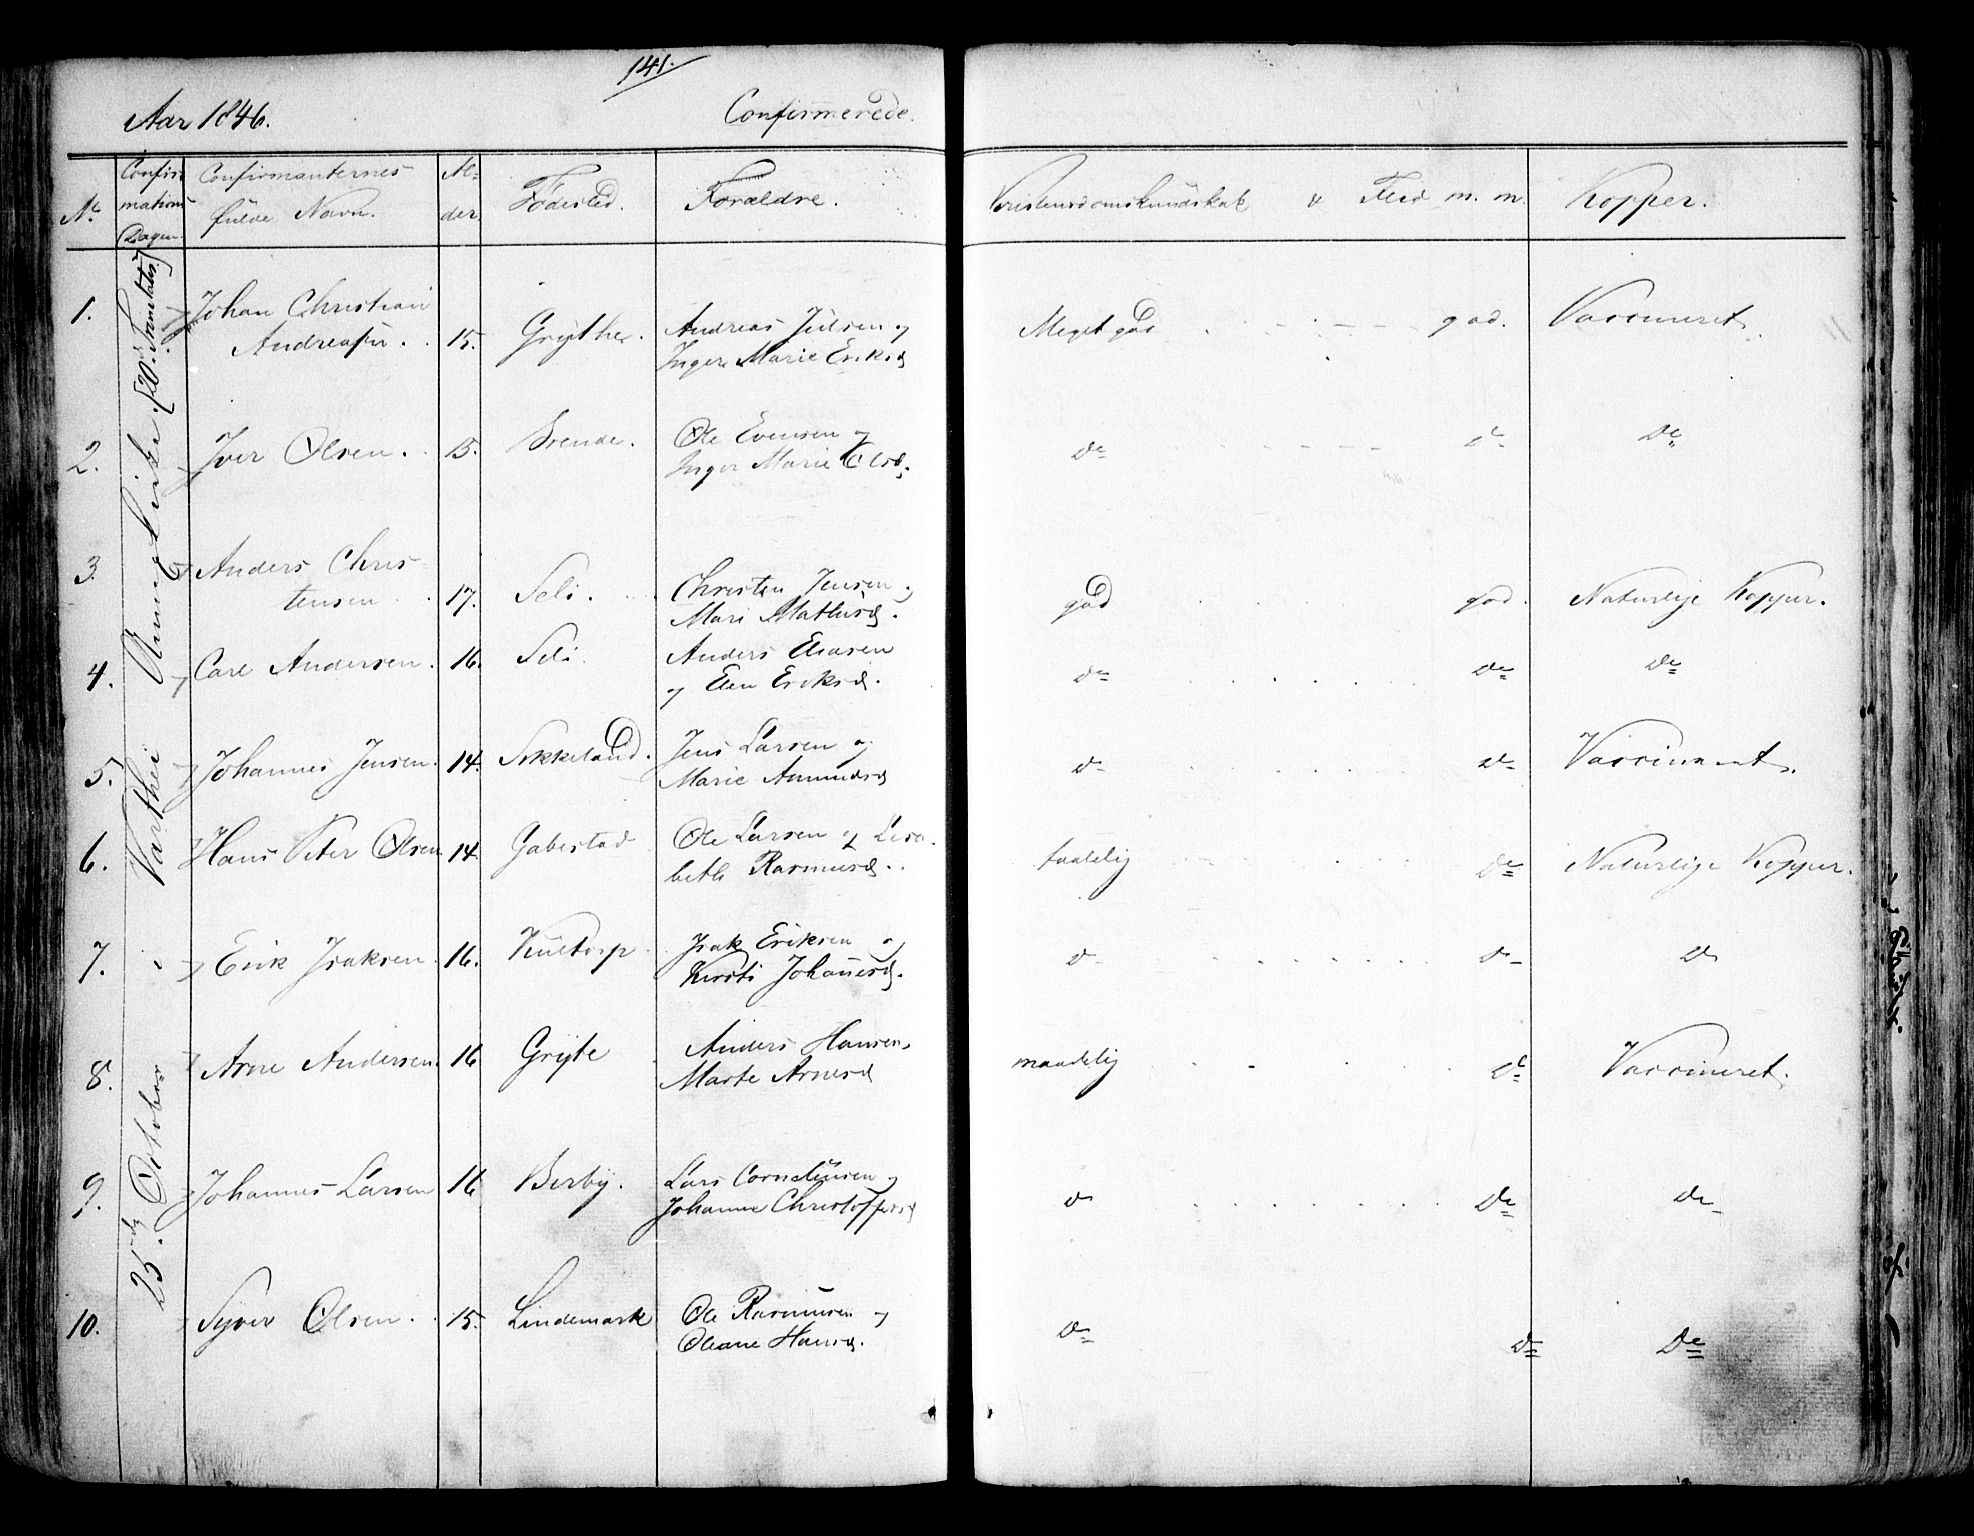 141.
Aar 1846. Confirmerede.
No Confirmations Dagen. Confirmanternes fulde Navn. Alder Fødested. Forældre. Kristendomskundskab & Flid m. m. Kopper.
25de October i Varthei Annex Kirke. (20de S. Trinitatis)
1. Johan Christian
Andreasen. 15. Grythe. Andreas Julsen og
Inger Marie Eriksd. Meget god god. Vaccineret
2. Iver Olsen. 15. Brende. Ole Evensen og
Inger Marie Olsd. do do do
3. Anders Chris-
tensen. 17. Seli. Christen Jensen og
Mari Mathisd. god god. Naturlige Kopper.
4. Carl Andersen. 16. Seli. Anders Eliasen
og Elen Eriksd. do do do
5. Johannes Jensen. 14. Sikkeland. Jens Larsen og
Marie Amundsd do do Vaccineret.
6. Hans Peter Olsen 14 Gabestad Ole Larsen og Lisa-
beth Rasmusd. taalelig do Naturlige Kopper.
7. Erik Isaksen. 16. Kultorp Isak Eriksen og
Kirsti Johannesd. do do do
8. Arne Andersen. 16 Grÿte Anders Hansen,
Marte Arnesd maadelig do Vaccineret.
9. Johannes Larsen 16 Berbÿ. Lars Corneliusen og
Johanne Christoffersd do do do
10. Syver Olsen. 15. Lindemark Ole Rasmusen og
Oleane Hansd. do do do